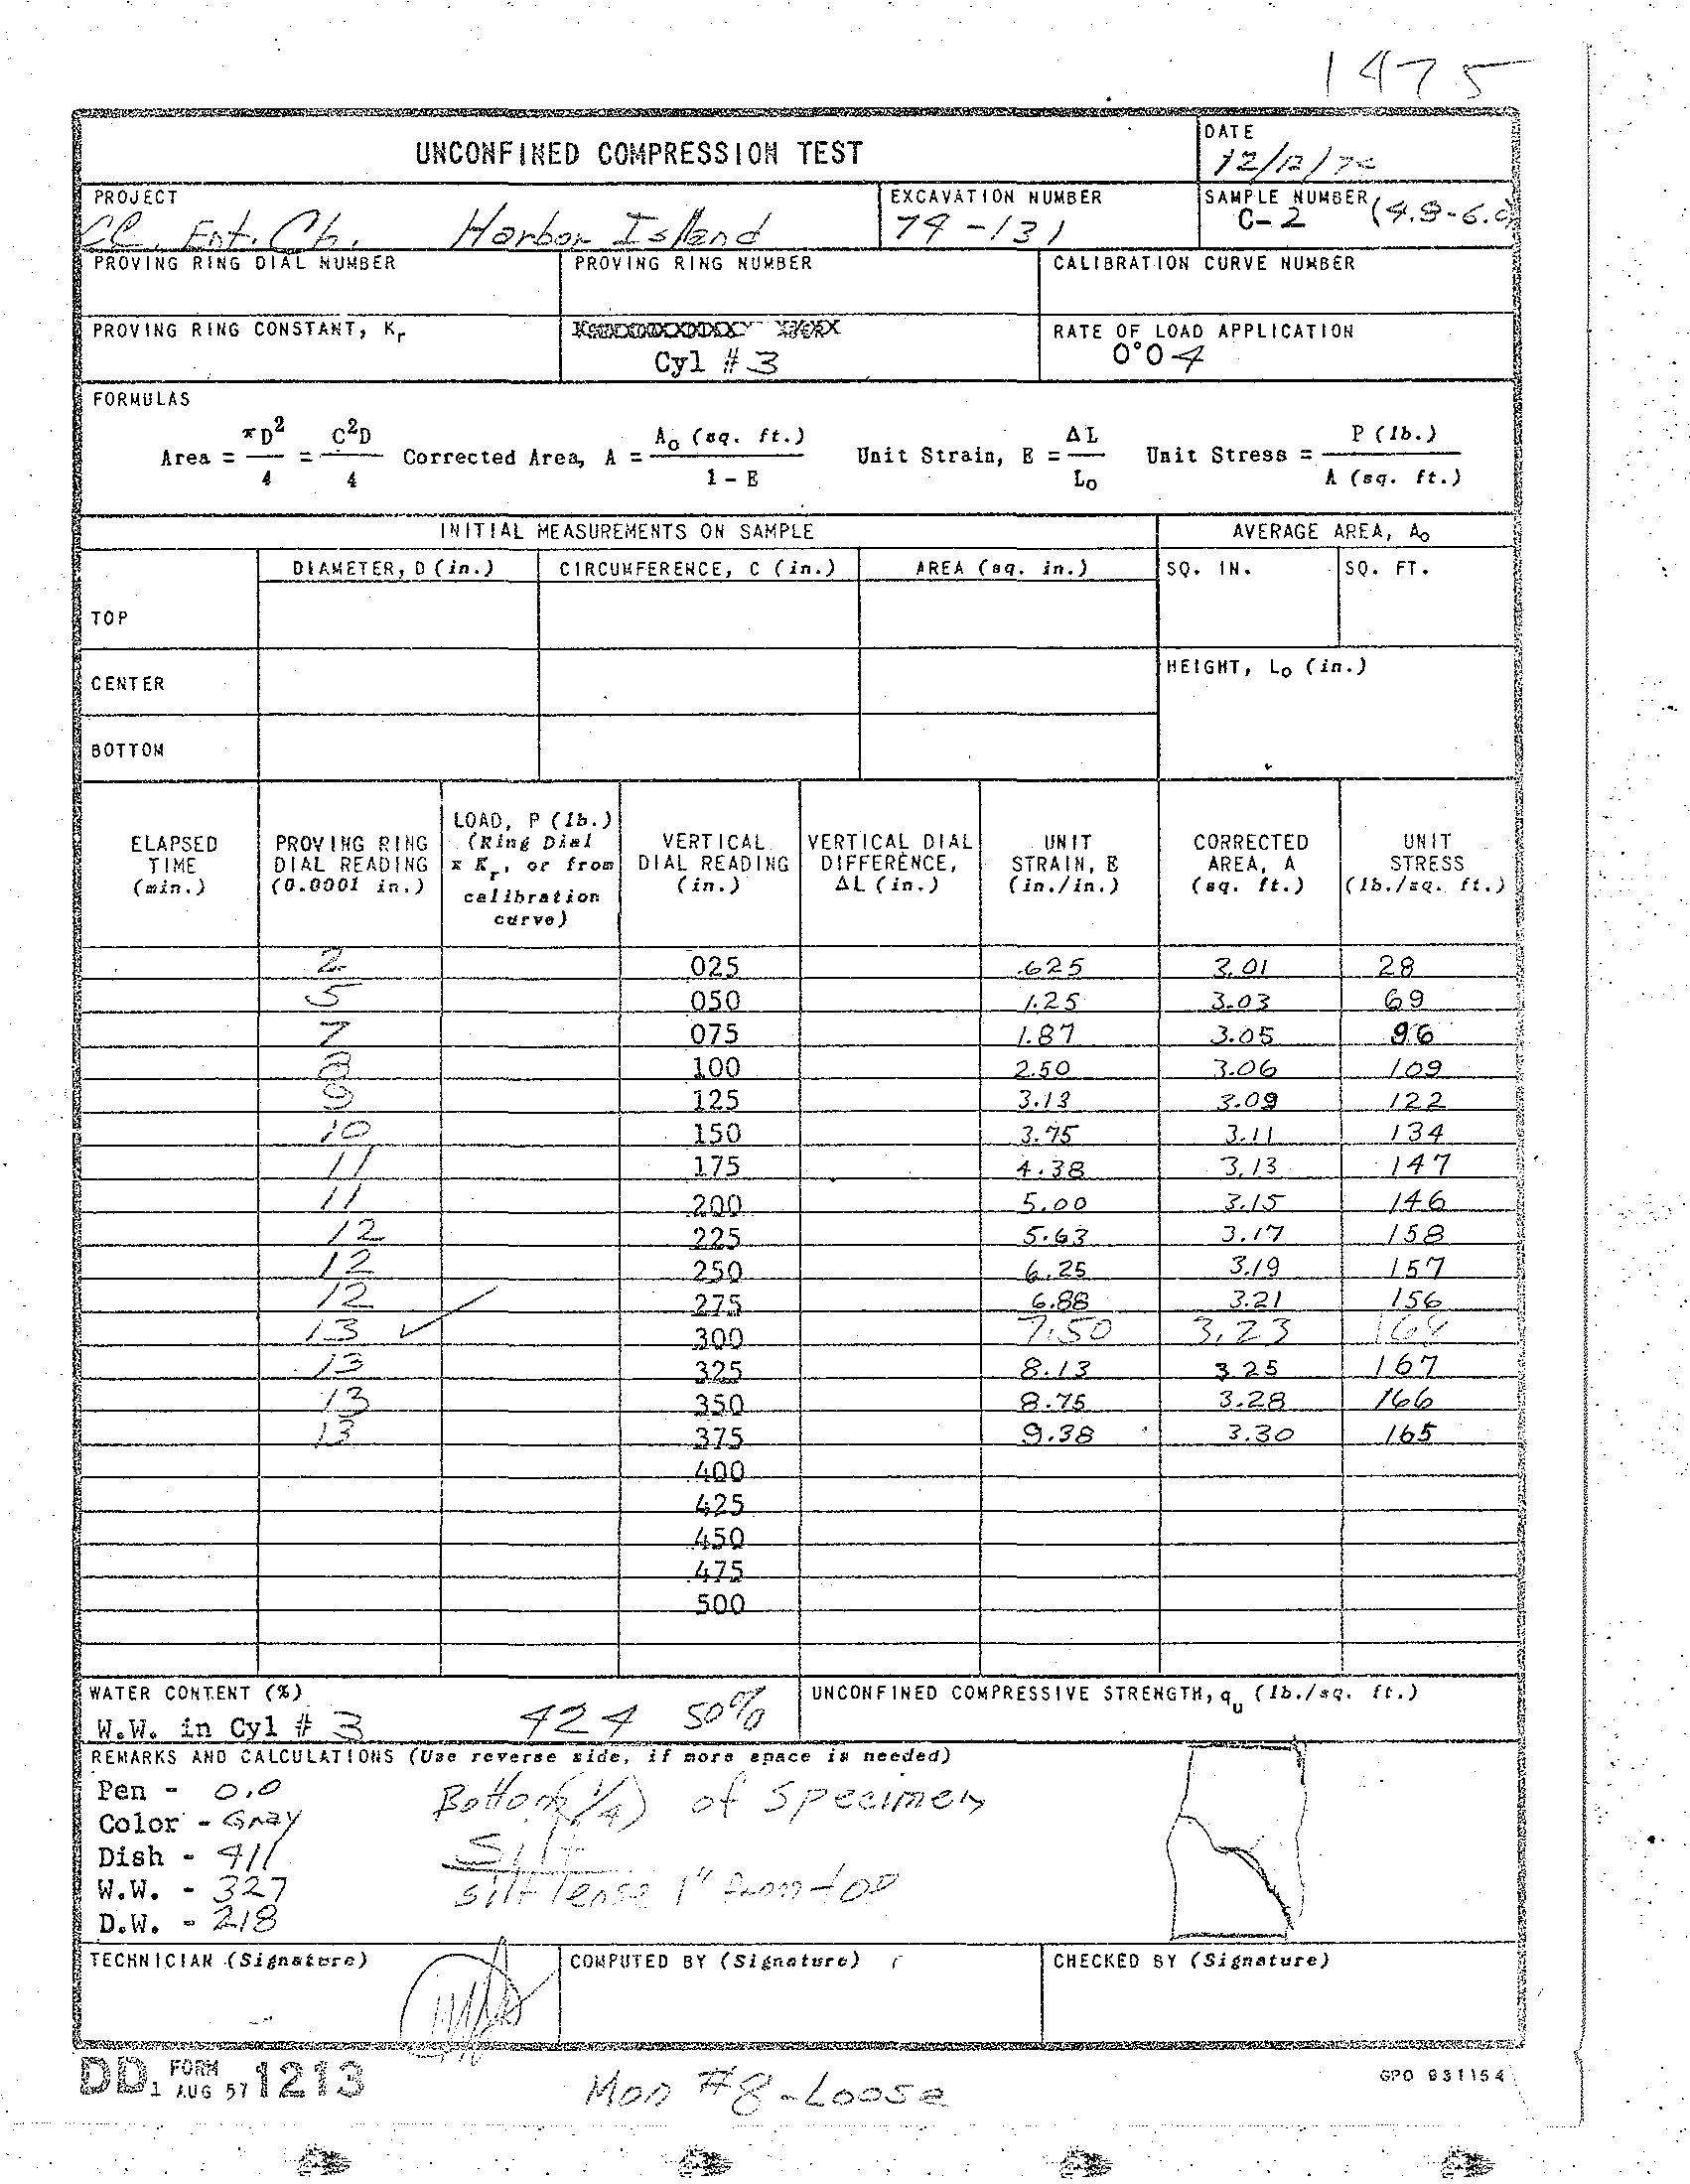 1475
UNCONFINED COMPRESSION TEST
DATE
12/12/74
PROJECT
CC. Ent. Ch. Harbor Island
EXCAVATION NUMBER
74-131
SAMPLE NUMBER
C-2 (4.8-6.0)
PROVING RING DIAL NUMBER
PROVING RING NUMBER
CALIBRATION CURVE NUMBER
PROVING RING CONSTANT, Kr
Cyl # 3
RATE OF LOAD APPLICATION
0°04
FORMULAS
Area = πD²/4 = C²D/4 Corrected Area, A = Ao (sq. ft.)/1 - E Unit Strain, E = ΔL/Lo Unit Stress = P (lb.)/A (sq. ft.)
INITIAL MEASUREMENTS ON SAMPLE
AVERAGE AREA, Ao
DIAMETER, D (in.) CIRCUMFERENCE, C (in.) AREA (sq. in.) SQ. IN. SQ. FT.
TOP
CENTER
HEIGHT, Lo (in.)
BOTTOM
ELAPSED TIME (min.)
PROVING RING DIAL READING (0.0001 in.)
LOAD, P (lb.) (Ring Dial x Kr, or from calibration curve)
VERTICAL DIAL READING (in.)
VERTICAL DIAL DIFFERENCE, ΔL (in.)
UNIT STRAIN, E (in./in.)
CORRECTED AREA, A (sq. ft.)
UNIT STRESS (lb./sq. ft.)
2 025 .625 3.01 28
5 050 1.25 3.03 69
7 075 1.87 3.05 96
8 100 2.50 3.06 109
9 125 3.13 3.09 122
10 150 3.75 3.11 134
11 175 4.38 3.13 147
11 200 5.00 3.15 146
12 225 5.63 3.17 158
12 250 6.25 3.19 157
12 275 6.88 3.21 156
13 ✓ 300 7.50 3.23 168
13 325 8.13 3.25 167
13 350 8.75 3.28 166
13 375 9.38 3.30 165
400
425
450
475
500
WATER CONTENT (%)
W.W. in Cyl # 3 424 50%
UNCONFINED COMPRESSIVE STRENGTH, qu (lb./sq. ft.)
REMARKS AND CALCULATIONS (Use reverse side, if more space is needed)
Pen - 0.0
Color - Gray
Dish - 411
W.W. - 327
D.W. - 218
Bottom (1/4) of Specimen
Silt
silt lense 1" from top
TECHNICIAN (Signature)
COMPUTED BY (Signature)
CHECKED BY (Signature)
DD FORM 1 AUG 57 1213
Mon #8-Loose
GPO 931154